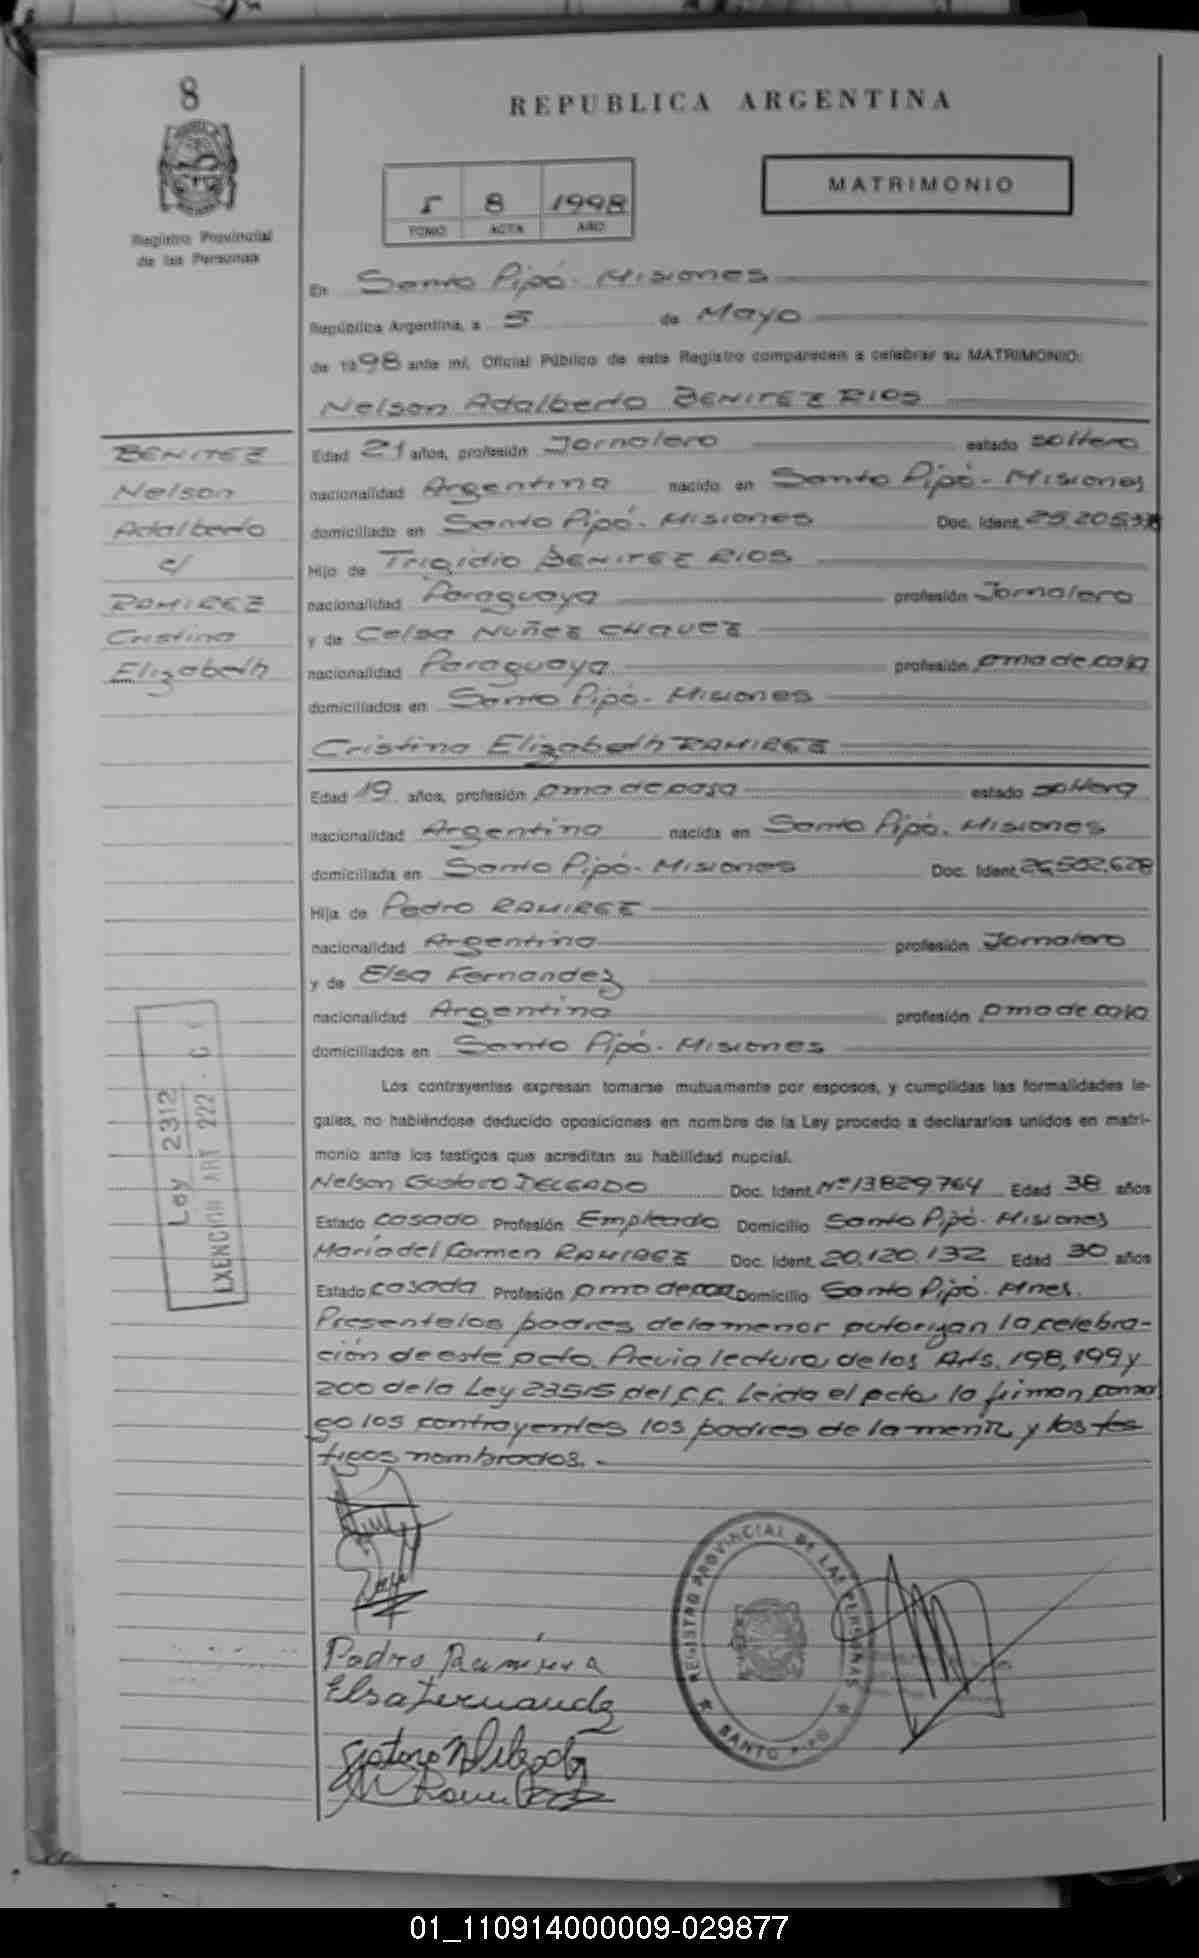 8
REPUBLICA ARGENTINA
I 8 1998
TOMO ACTA AÑO
MATRIMONIO
Registro Provincial
de las Personas
En Santo Pipó - Misiones
República Argentina, a 5 de Mayo
de 1998 ante mí, Oficial Público de este Registro comparecen a celebrar su MATRIMONIO:
Nelson Adalberto BENITEZ RIOS
BENITEZ
Nelson
Adalberto
c/
RAMIREZ
Cristina
Elizabeth
Edad 21 años, profesión Jornalero estado soltero
nacionalidad Argentina nacido en Santo Pipó - Misiones
domiciliado en Santo Pipó - Misiones Doc. Ident.
Hijo de Trigidio BENITEZ RIOS
nacionalidad Paraguaya profesión Jornalero
y de Celsa NUÑEZ CHAVEZ
nacionalidad Paraguaya profesión ama de casa
domiciliados en Santo Pipó - Misiones
Cristina Elizabeth RAMIREZ
Edad 19 años, profesión ama de casa estado soltera
nacionalidad Argentina nacida en Santo Pipó. Misiones
domiciliada en Santo Pipó - Misiones Doc. Ident. 26,502,628
Hija de Pedro RAMIREZ
nacionalidad Argentina profesión Jornalero
y de Elsa Fernandez
nacionalidad Argentina profesión ama de casa
domiciliados en Santo Pipó - Misiones
Ley 2312
EXENCION ART 222 . C
Los contrayentes expresan tomarse mutuamente por esposos, y cumplidas las formalidades le-
gales, no habiéndose deducido oposiciones en nombre de la Ley procedo a declararlos unidos en matri-
monio ante los testigos que acreditan su habilidad nupcial.
Nelson Gustavo DELGADO Doc. Ident. Nº 13829764 Edad 38 años
Estado casado Profesión Empleado Domicilio Santo Pipó - Misiones
María del Carmen RAMIREZ Doc. Ident. 20,120,132 Edad 30 años
Estado casada Profesión ama de casa Domicilio Santo Pipó. Mnes.
Presente los padres de la menor autorizan la celebra-
ción de este acto. Previa lectura de los Arts. 198, 199 y
200 de la Ley 23515 del C.C. Leida el acta, la firman conmi
go los contrayentes los padres de la menor y los tes
tigos nombrados. -
Elsa Fernandez
REGISTRO PROVINCIAL DE LAS PERSONAS
SANTO PIPO
01_110914000009-029877